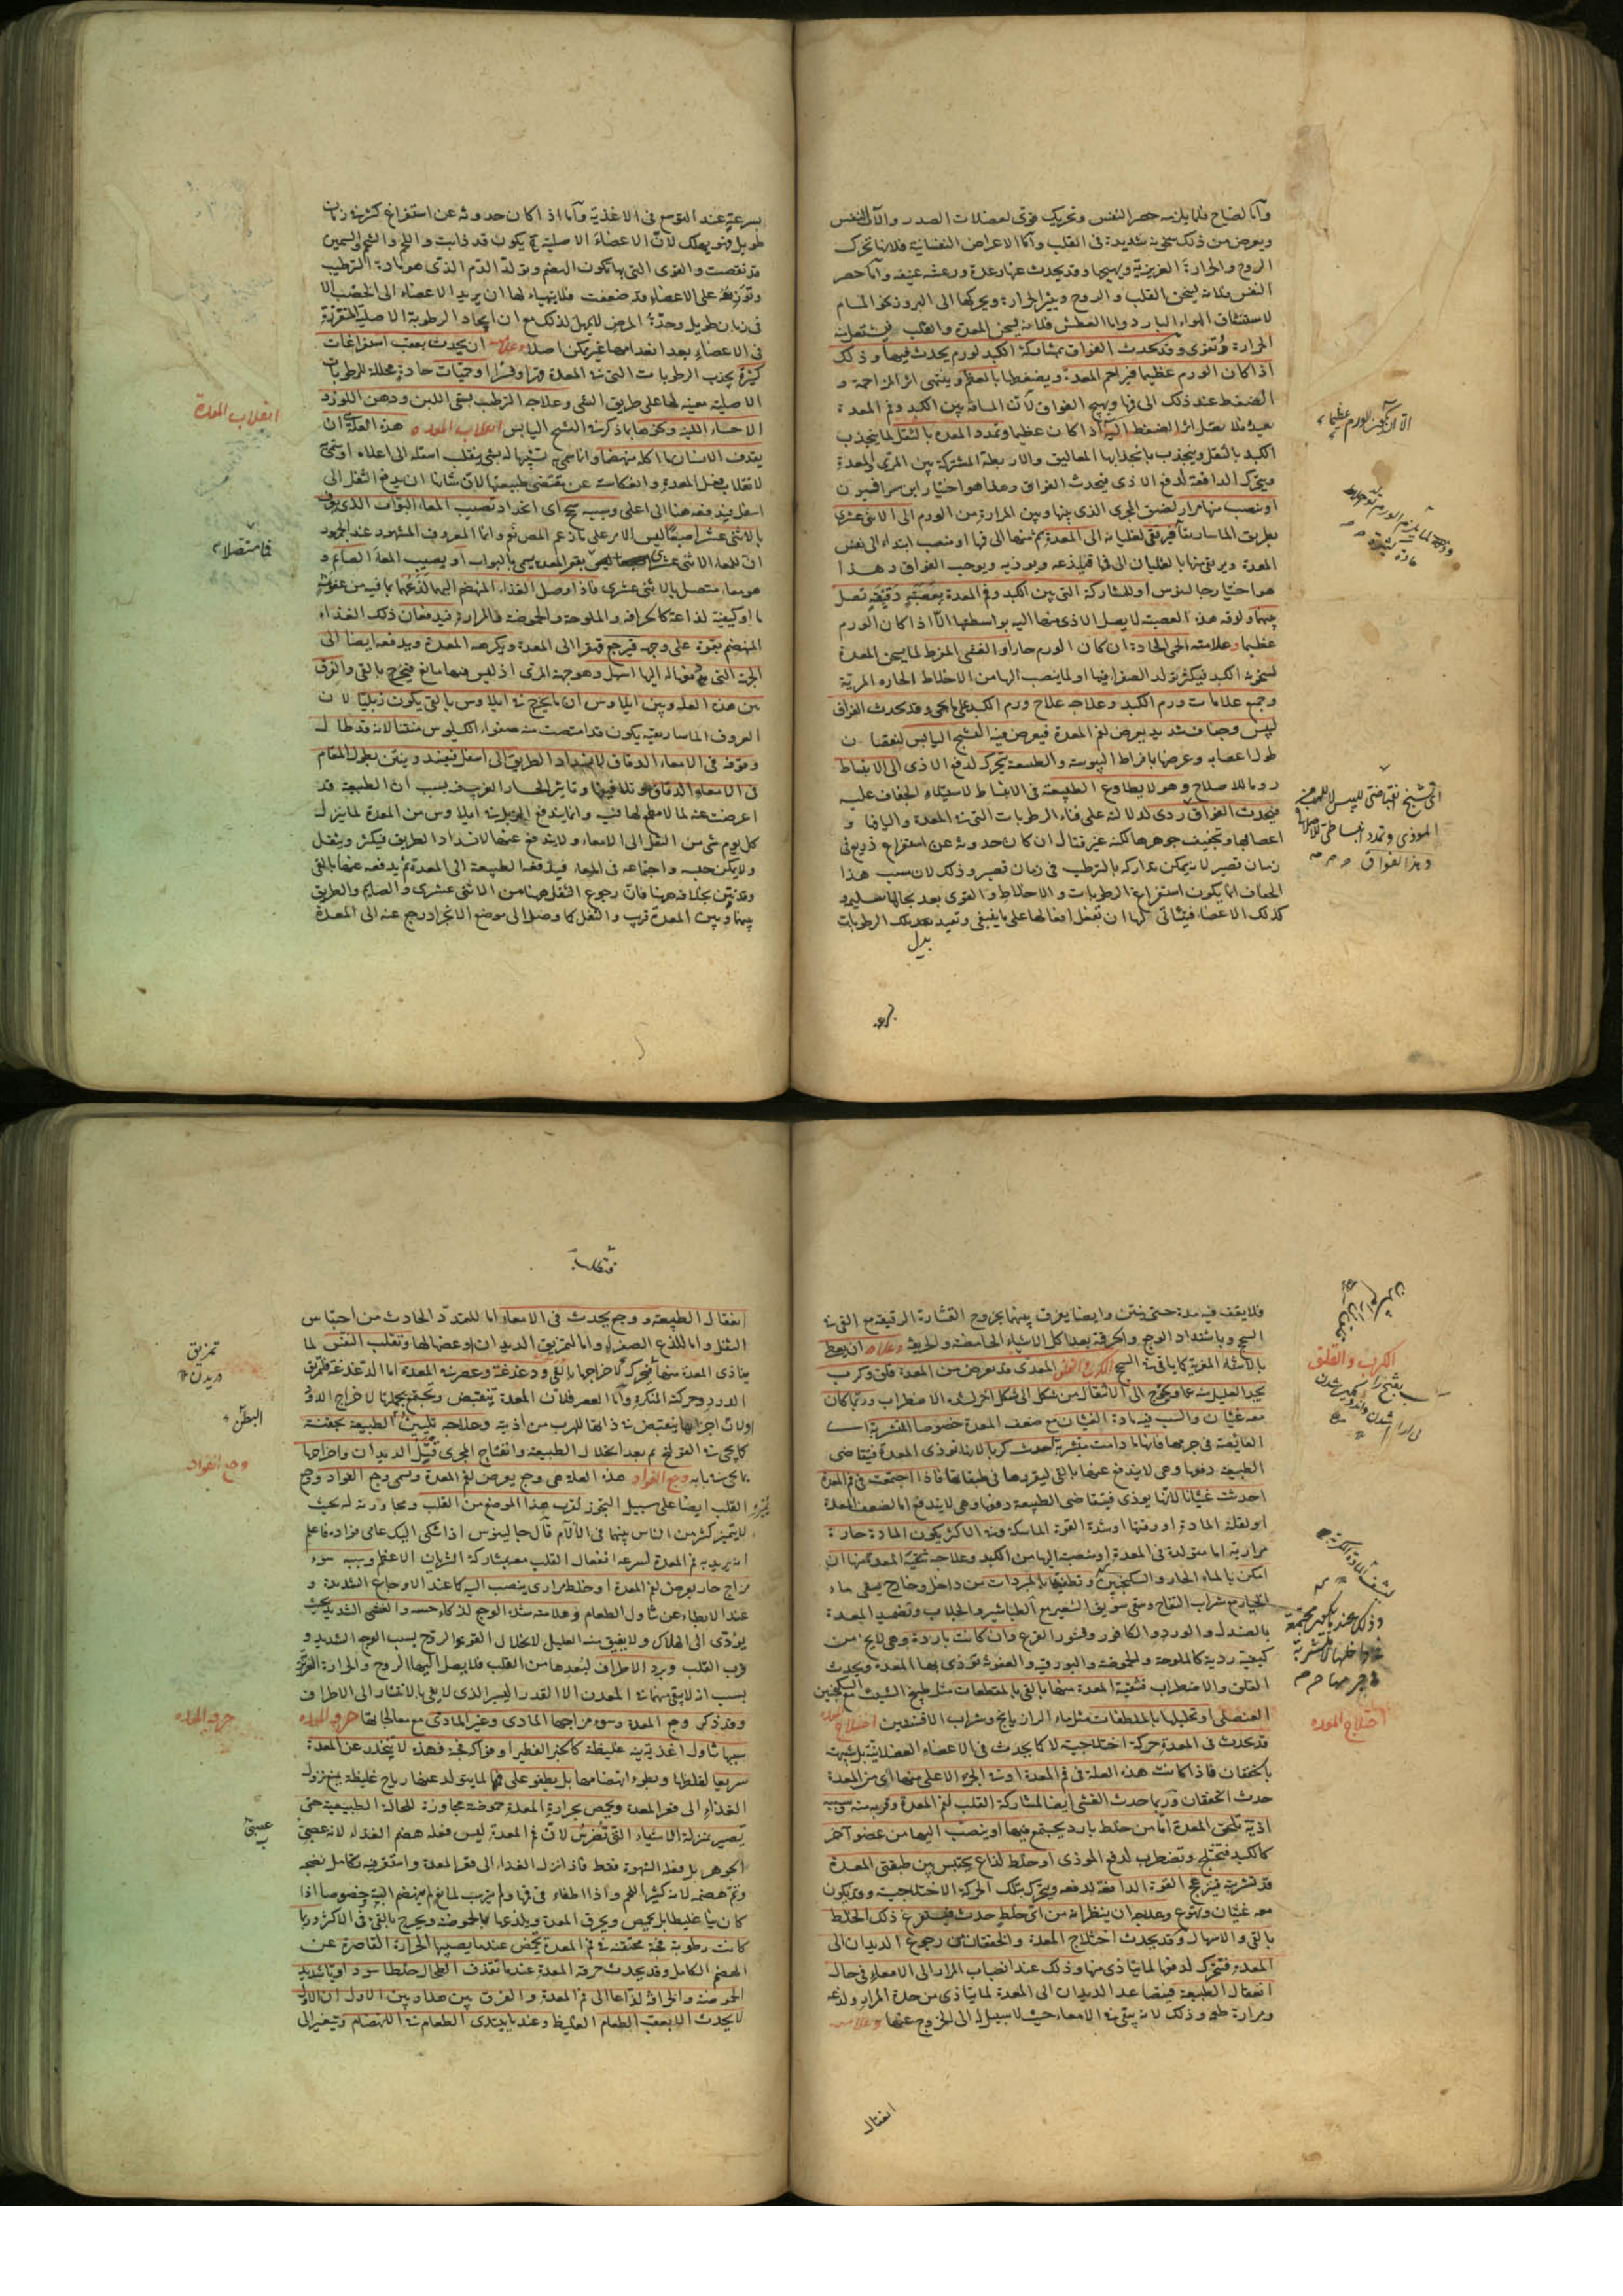 وأما الصياح فلما يلزمه حصر النفس وتحريك قوي لعضلات الصدر والآلات النفس
ويعرض من ذلك سخونة شديدة في القلب وأما الاعراض النفسانية فلانها تحرك
الروح والحرارة الغريزية ويهيجها وقد يحدث عنها رعدة ورعشة عنيفة وأما حصر
النفس فلانه يسخن القلب والروح ويثير الحرارة ويحركها الى البروز نحو المسام
لاستنشاق الهواء البارد واما العطش فلانه يسخن المعدة والقلب
الحرارة وتقوى وقد يحدث الفواق بمشاركة الكبد لورم يحدث فيها وذلك
اذا كان الورم عظيما فيزاحم المعدة ويضغطها بالعظم وينتهى اثر المزاحمة و
الضغط عند ذلك الى فمها ويهيج الفواق لان المسافة بين الكبد وفم المعدة
بعيدة فلا يصل اثر الضغط اليه الا اذا كان عظيما وتمدد المعدة بالثقل لما ينجذب
الكبد بالثقل وينجذب بانجذابها المعاليق والاربطة المشتركة بين المرئ والمعدة
ويتحرك الدافعة لدفع الاذى فيحدث الفواق وهذا هو اختيار ابن سرافيون
او ينصب منها مرار لضيق المجرى الذى بينها وبين المرارة من الورم الى الاثنى عشرى
بطريق الماساريقا فيرتقى لغليانه الى المعدة ثم منها الى فمها او ينصب ابتداء الى نفس
المعدة ويرتقى منها بالغليان الى فمها فيلذعه ويوذيه ويوجب الفواق وهذا
هو اختيار جالينوس او للمشاركة التى بين الكبد وفم المعدة بعصبة دقيقة تصل
بينهما ولرقة هذه العصبة لا يصل الاذى منها اليه بواسطتها الا اذا كان الورم
عظيما وعلامته الحمى الحادة ان كان الورم حارا والغشى المفرط لما يسخن المعدة
لسخونة الكبد فيكثر تولد الصفراء فيها او لما ينصب اليها من الاخلاط الحارة المرية
وجميع علامات ورم الكبد وعلاجه علاج ورم الكبد على ما يجئ وقد يحدث الفواق
ليبس وجفاف شديد يعرض لفم المعدة فيعرض فيه التشنج اليابس لنقصان
طول اعصابه وعرضها بافراط اليبوسة والطبيعة تتحرك لدفع الاذى الى الانبساط
روما للاصلاح وهو لا يطاوع الطبيعة فى الانبساط لاستيلاء الجفاف عليه
فيحدث الفواق ردى لدلالته على فناء الرطوبات التى فى المعدة واليافها و
اعصابها وتجفيف جوهرها لكنه غير قتال ان كان حدوثه عن استفراغ ذريع فى
زمان قصير لانه يمكن تداركه بالترطيب فى زمان قصير وذلك لان سبب هذا
الجفاف انما يكون استفراغ الرطوبات والاخلاط والقوى بعد بحالها سليمة و
كذلك الاعضاء فيتاتى لها ان تفعل افعالها على ما ينبغى وتعيد بدل تلك الرطوبات
بدل
بسرعة
الا ان يكون الورم عظيما
اى تشنج انقباضى لليبس لا للهرب من
الموذى وتمدد انبساطى للاصلاح
وهذا الفواق
بسرعة عند التوسع فى الاغذية وأما اذا كان حدوثه عن استفراغ كثير فى زمان
طويل فهو مهلك لان الاعضاء الاصلية ح يكون قد ذابت واللحم والشحم والسمين
قد نقصت والقوى التى بها تكون الهضم وتولد الدم الذى هو مادة الترطيب
وتوزعه على الاعضاء قد ضعفت فلا يتهياء لها ان يرد بها الاعضاء الى الخصب الا
فى زمان طويل وحدة المرض لا يمهل لذلك مع ان ايجاد الرطوبة الاصلية المتقررة
فى الاعضاء بعد انعدامها غير ممكن اصلا وعلامته ان يحدث بعقب استفراغات
كثيرة يجذب الرطوبات التى فى المعدة قسرا او حميات حادة محللة للرطوبات
الاصلية معينة لها على طريق القى وعلاجه الترطيب بسقى اللبن ودهن اللوز و
الاحساء اللينة ونحوها مما ذكر فى التشنج اليابس انقلاب المعدة هذه العلة ان
يقذف الانسان ما اكله منهضما وانما سمى تشبيها له بشئ ينقلب اسفله الى اعلاه
لانقلاب فعل المعدة وانعكاسه عن مقتضى طبيعتها لان شانها ان يدفع الثقل الى
اسفل فيدفعه هنا الى اعلى وسببه سحج اى انجراد نصيب المعاء البواب الذى يعرف
بالاثنى عشر اصبعا ليس الامر على ما زعم المصنف وانما المعروف المشهور عند الجمهور
ان المعاء الاثنى عشرى متصل بقعر المعدة يسمى بالبواب او يصيب المعاء الصائم و
هو معاء متصل بالاثنى عشرى فاذا وصل الغذاء المنهضم اليهما لذعهما بما فيه من عفوصة
ما او كيفية لذاعة كالحرافة والملوحة والحموضة والمرارة فيدفعان ذلك الغذاء
المنهضم بقوة على وجهه فيرجع قهقرا الى المعدة ويكرهه المعدة ويدفعه ايضا الى
الجهة التى دفعها له اليها اسهل وهو جهة المرئ اذ ليس فيها مانع فيخرج بالقى والفرق
بين هذه العلة وبين ايلاوس ان ما يخرج فى ايلاوس بالقى يكون زبليا لان
العروف الماساريقية يكون قد امتصت منه صفو الكيلوس منتنا لانه قد طال
وقوفه فى الامعاء الدقاق لانسداد الطريق الى اسفل فيفسد وينتن بطول المقام
فى الامعاء الدقاق وتلافيفها وتاثير الحار الغريب فيه بسبب ان الطبيعة قد
اعرضت عنه لما لا مطمع لها فيه وانما يندفع البراز فى ايلاوس من المعدة لما ينزل
كل يوم شئ من الثفل الى الامعاء ولا يندفع عنها لانسداد الطريق فيكثر ويثقل
ولا يمكن حبسه واجتماعه فى المعاء فيدفعه الطبيعة الى المعدة ثم يدفعه عنها بالقى
وقد نتن بخلافه هنا فان رجوع الثفل هنا من الاثنى عشرى والصايم والطريق
بينهما وبين المعدة قريب والثفل كما وصل الى موضع الانجراد رجع عنه الى المعدة
انقلاب المعدة
فلا يقف فيه مدة حتى ينتن وايضا يفرق بينهما بخروج القشارة الرقيقة مع القى فى
السحج وباشتداد الوجع والحرقة بعد اكل الاشياء الحامضة والحريفة وعلاجه ان يعطى
بالاشياء المغرية كما ياتى فى السحج الكرب والقلق المعدى قد يعرض من المعدة قلق وكرب
يجد العليل منه غما ويحوج الى الانتقال من شكل الى شكل اخر لشدة الاضطراب وربما كان
معه غثيان والسبب فيه مادة الغثيان مع ضعف المعدة خصوصا المتشربة اى
الغائصة فى جرمها فانها ما دامت متشربة احدث كربا لانها توذى المعدة فيتقاضى
الطبيعة دفعها وهى لا يندفع عنها بالقى لتوردها فى طبقاتها فاذا اجتمعت فى فم المعدة
احدثت غثيانا لانها يوذى فيتقاضى الطبيعة دفعها وهى لا يندفع اما لضعف المعدة
او لقلة المادة او رقتها او شدة القوة الماسكة وفى الاكثر يكون المادة حارة
مرارية اما متولدة فى المعدة او منصبة اليها من الكبد وعلاجه تنقية المعدة منها ان
امكن بالماء الحار والسكنجبين وتطفيتها بالمبردات من داخل وخارج بسقى ماء
الخيار مع شراب التفاح وسقى سويق الشعير مع الطباشير والجلاب وتضميد المعدة
بالصندل والورد والكافور وقشور القرع وان كانت باردة وهى لا يخ من
كيفية ردية كالملوحة والحموضة والبورقية والعفوصة توذى بها المعدة ويحدث
القلق والاضطراب فتنقية المعدة منها بالقى بالمقطعات مثل طبيخ الشبت مع السكنجبين
العنصلى او تحليلها بالملطفات مثل ماء الرازيانج وشراب الافسنتين اختلاج المعدة
قد يحدث فى المعدة حركة اختلاجية لا كما يحدث فى الاعضاء العضلانية بل شبيهة
بالخفقان فاذا كانت هذه العلة فى فم المعدة او فى الجزء الاعلى منها اى من المعدة
حدث الخفقان وربما حدث الغشى ايضا لمشاركة القلب لفم المعدة وقربه منه سببه
اذية تلحق المعدة اما من خلط بارد يجتمع فيها او ينصب اليها من عضو اخر
كالكبد فتختلج وتضطرب لدفع الموذى او خلط لذاع يحتبس بين طبقتى المعدة
قد تشربته فينزعج القوة الدافعة لدفعه ويتحرك بتلك الحركة الاختلاجية وقد يكون
معه غثيان وتهوع وعلاجه ان ينظر انه من اى خلط حدث فيستفرغ ذلك الخلط
بالقى والاسهال وقد يحدث اختلاج المعدة والخفقان من رجوع الديدان الى
المعدة فتتحرك لدفعها لما يتاذى منها وذلك عند انصباب المرار الى الامعاء فى حال
انعقال الطبيعة فيتصاعد الديدان الى المعدة لما يتاذى من حدة المرار ولذعه
ومرارة طعمه وذلك لانه يبقى فى الامعاء حيث لا سبيل له الى الخروج عنها وعلامته
انعقال
الكرب والقلق
وذلك عند ما يكون مجتمعة
اختلاج المعدة
انعقال الطبيعة ووجع يحدث فى الامعاء اما للتمدد الحادث من احتباس
الثفل واما للذع الصفراء واما لتمزيق الديدان او عضها لها وتقلب النفس لما
يتاذى المعدة منها فيتحرك لاخراجها بالقى ودغدغة وعصر فى المعدة اما الدغدغة فلتمزيق
الدود وحركته المنكرة وأما العصر فلان المعدة تنقبض وتجتمع بجملتها لاخراج الدود
او لان اجزائها ينقبض فى ذاتها للهرب من اذيته وعلاجه تليين الطبيعة بحقنة
كما يجئ فى القولنج ثم بعد انحلال الطبيعة وانفتاح المجرى قتل الديدان واخراجها
بما يجئ فى بابه وجع الفواد هذه العلة هى وجع يعرض لفم المعدة ويسمى وجع الفواد ووجع
القلب ايضا على سبيل التجوز لقرب هذا الموضع من القلب ومجاورته له بحيث
لا يتميز كثير من الناس بينهما فى الآلام قال جالينوس اذا شكى اليك عامى فواده فاعلم
انه يريد به فم المعدة لسرعة انفعال القلب معه بمشاركة الشريان الاعظم وسببه سوء
مزاج حار يعرض لفم المعدة او خلط مرارى ينصب اليه كما عند الاوجاع الشديدة و
عند الابطاء عن تناول الطعام وعلامته شدة الوجع لذكاء حسه والغشى الشديد بحيث
يؤدى الى الهلاك ولا يفيق منه العليل لانحلال القوى والروح بسبب الوجع الشديد و
قرب القلب وبرد الاطراف لبعدها من القلب فلا يصل اليها الروح والحرارة الغريزية
بسبب انه لا يبقى منهما فى المعدن الا القدر اليسير الذى لا يفى بالانتشار الى الاطراف
وقد ذكر وجع المعدة وسوء مزاجها المادى وغير المادى مع معالجاتها حرقة المعدة
سببها تناول اغذية غليظة كالخبز الفطير او فواكه فجة فهذه لا ينحدر عن المعدة
سريعا لغلظها وبطوء انهضامها بل يطفو على فمها لما يتولد عنها رياح غليظة يمنع نزول
الغذاء الى قعر المعدة ويحمض بحرارة المعدة حموضة مجاوزة للحالة الطبيعية حتى
يصير بمنزلة الاشياء التى تضرس لان فم المعدة ليس فعله هضم الغذاء لانه عصبى
الجوهر بل فعله الشهوة فقط فاذا نزل الغذاء الى قعر المعدة واستقر فيه تكامل نضجه
وتم هضمه لانه كثير اللحم واذا طفا فى فمها ولم يرسب لمانع لم ينهضم البتة خصوصا اذا
كان شيا غليظا بل يحمض ويحرق المعدة ويلذعها بالحموضة ويخرج بالقى فى الاكثر وربما
كانت رطوبة فجة محتقنة فى فم المعدة يحمض عندما يصيبها الحرارة القاصرة عن
الهضم الكامل وقد يحدث حرقة المعدة عندما تقذف الطحال خلطا سوداويا شديد
الحموضة والحرافة لذاعا الى فم المعدة والفرق بين هذا وبين الاول ان الاول
لا يحدث الا بعقب الطعام الغليظ وعند ما يبتدى الطعام فى الانهضام ويتغير الى
تمزيق
دريدن
البطن
وجع الفواد
حرقة المعدة
عصبى